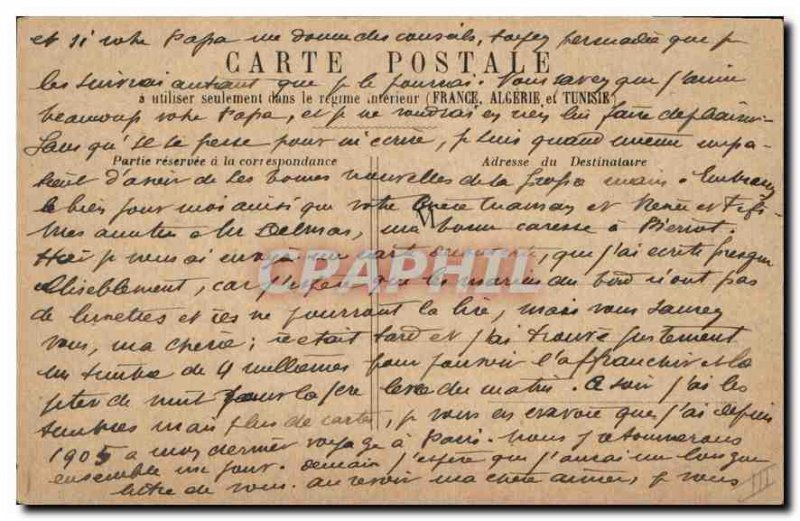 et si votre Papa me donne des conseils, soyez persuadée que je
CARTE POSTALE
les suivrai autant que je le pourrai. Vous savez que j'aime
à utiliser seulement dans le régime intérieur (FRANCE, ALGÉRIE et TUNISIE)
beaucoup votre Papa, et je ne voudrais en rien lui faire
Sans qu'il se presse pour m'écrire, je suis quand même impa-
Partie réservée à la correspondance
Adresse du Destinataire
tient d'avoir de ses bonnes nouvelles de sa propre main. Embrassez
le bien pour moi ainsi que votre chère maman et Renée et
mes amitiés à Mr Delmas, ma bonne caresse à Pierrot.
je vous ai envoyé une carte que j'ai écrite presque
illisiblement, car j'espère que les marins du bord n'ont pas
de lunettes et ils ne pourront la lire, mais vous saurez
vous, ma chérie; c'était tard et j'ai trouvé justement
un timbre de 4 millièmes pour pouvoir l'affranchir et la
jeter de nuit pour la 1ère levée du matin. Ce soir j'ai les
timbres mais plus de cartes, je vous en envoie que j'ai depuis
1905 à mon dernier voyage à Paris. Nous y retournerons
ensemble un jour. Demain j'espère que j'aurai une longue
lettre de vous. au revoir ma chère aimée, je vous
III
CPAPHIL